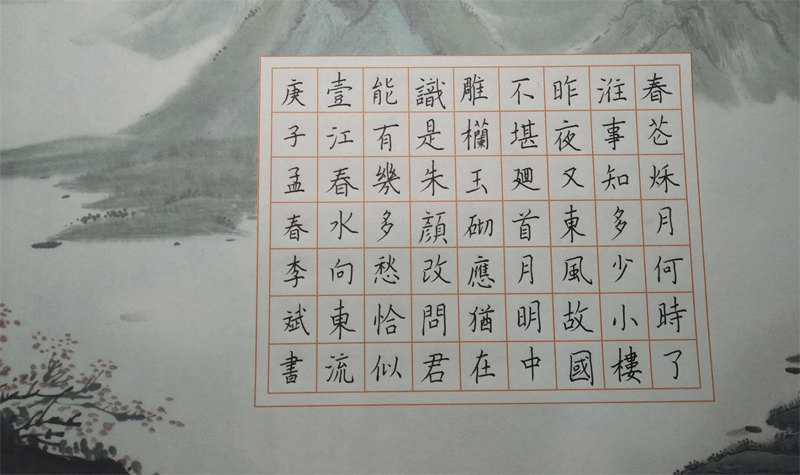 春芲秌月何時了
往事知多少小樓
昨夜又東風故國
不堪廻首月明中
雕欄玉砌應猶在
識是朱顔改問君
能有幾多愁恰似
壹江春水向東流
庚子孟春李斌書